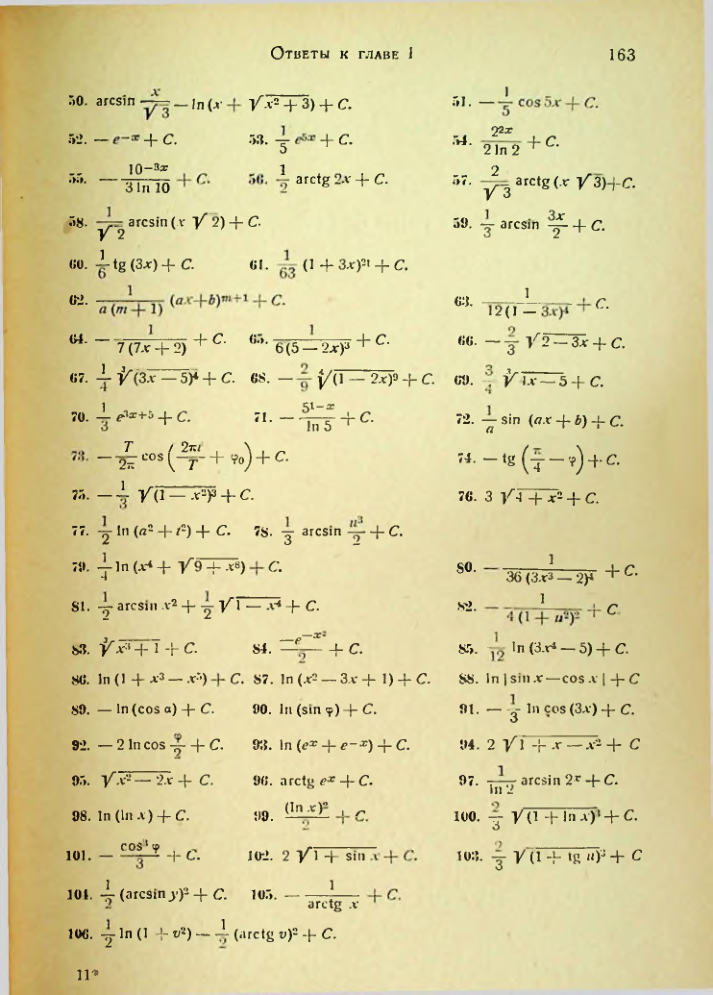 Ответы к главе I 163
50. arcsin x/√3 − ln (x + √(x² + 3)) + C. 51. − 1/5 cos 5x + C.
52. − e^(−x) + C. 53. 1/5 e^(5x) + C. 54. 2^(2x)/(2 ln 2) + C.
55. − 10^(−3x)/(3 ln 10) + C. 56. 1/2 arctg 2x + C. 57. 2/√3 arctg (x √3) + C.
58. 1/√2 arcsin (x √2) + C. 59. 1/3 arcsin 3x/2 + C.
60. 1/6 tg (3x) + C. 61. 1/63 (1 + 3x)²¹ + C.
62. 1/(a (m + 1)) (ax + b)^(m+1) + C. 63. 1/(12 (1 − 3x)⁴) + C.
64. − 1/(7 (7x + 2)) + C. 65. 1/(6 (5 − 2x)³) + C. 66. − 2/3 √(2 − 3x) + C.
67. 1/4 ∛((3x − 5)⁴) + C. 68. − 2/9 ∜((1 − 2x)⁹) + C. 69. 3/4 ∛(4x − 5) + C.
70. 1/3 e^(3x+5) + C. 71. − 5^(1−x)/ln 5 + C. 72. 1/a sin (ax + b) + C.
73. − T/2π cos (2πt/T + φ₀) + C. 74. − tg (π/4 − φ) + C.
75. − 1/3 √((1 − x²)³) + C. 76. 3 √(4 + x²) + C.
77. 1/2 ln (a² + t²) + C. 78. 1/3 arcsin u³/2 + C.
79. 1/4 ln (x⁴ + √(9 + x⁸)) + C. 80. − 1/(36 (3x³ − 2)⁴) + C.
81. 1/2 arcsin x² + 1/2 √(1 − x⁴) + C. 82. − 1/(4 (1 + u²)²) + C
83. ∛(x³ + 1) + C. 84. −e^(−x²)/2 + C. 85. 1/12 ln (3x⁴ − 5) + C.
86. ln (1 + x³ − x⁵) + C. 87. ln (x² − 3x + 1) + C. 88. ln | sin x — cos x | + C
89. − ln (cos α) + C. 90. ln (sin φ) + C. 91. − 1/3 ln cos (3x) + C.
92. − 2 ln cos φ/2 + C. 93. ln (e^x + e^(−x)) + C. 94. 2 √(1 + x − x²) + C
95. √(x² − 2x) + C. 96. arctg e^x + C. 97. 1/ln 2 arcsin 2^x + C.
98. ln (ln x) + C. 99. (ln x)²/2 + C. 100. 2/3 √((1 + ln x)³) + C.
101. − cos³ φ/3 + C. 102. 2 √(1 + sin x) + C. 103. 2/3 √((1 + tg u)³) + C
104. 1/2 (arcsin y)² + C. 105. − 1/arctg x + C.
106. 1/2 ln (1 + v²) − 1/2 (arctg v)² + C.
11*